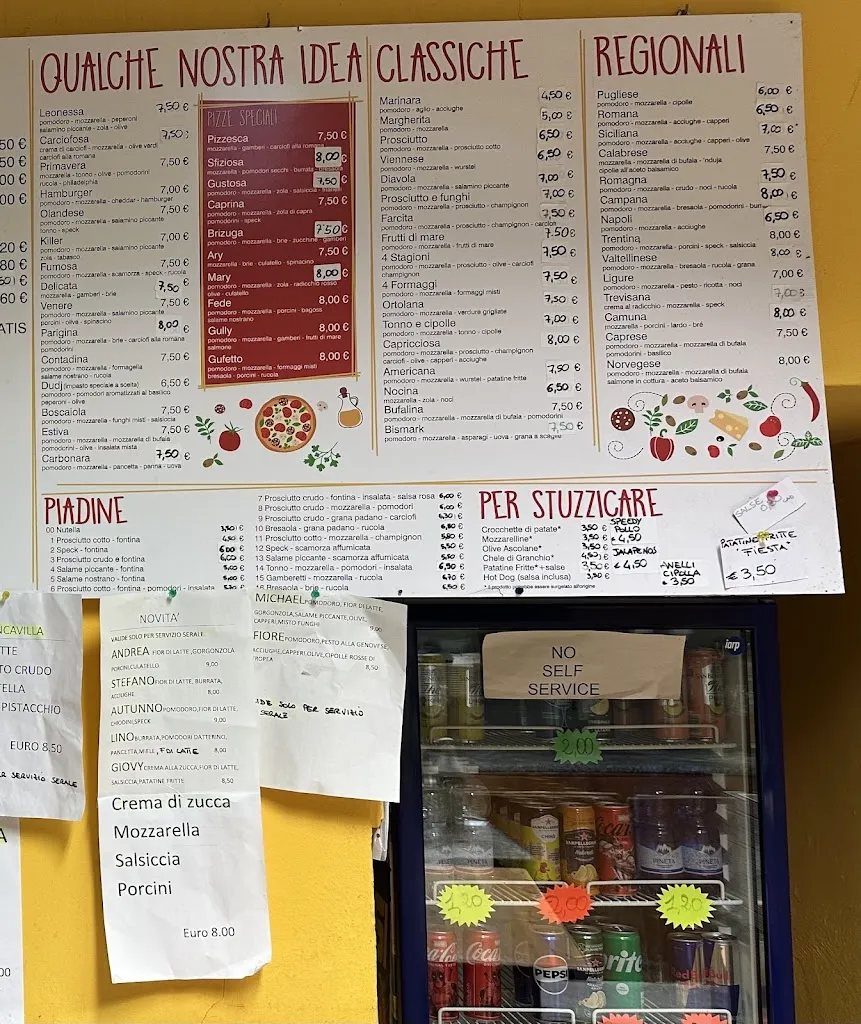 50 €
50 €
00 €
00 €
20 €
80 €
50 €
60 €
ATIS
QUALCHE NOSTRA IDEA
Leonessa 7,50 €
pomodoro - mozzarella - peperoni
salamino piccante - zola - olive
Carciofosa 7,50
crema di carciofi - mozzarella - olive verdi
carciofi alla romana
Primavera 7,50 €
mozzarella - tonno - olive - pomodorini
rucola - philadelphia
Hamburger 7,00 €
pomodoro - mozzarella - cheddar - hamburger
Olandese 7,50 €
pomodoro - mozzarella - salamino piccante
tonno - speck
Killer 7,00 €
pomodoro - mozzarella - salamino piccante
zola - tabasco
Fumosa 7,50 €
pomodoro - mozzarella - scamorza - speck - rucola
Delicata 7,50 €
mozzarella - gamberi - brie
Venere 7,50 €
pomodoro - mozzarella - salamino piccante
porcini - olive - spinacino
Parigina 8,00 €
pomodoro - mozzarella - brie - carciofi alla romana
pomodorini
Contadina 7,50 €
pomodoro - mozzarella - formagella
salame nostrano - rucola
Dudj (impasto speciale a scelta) 6,50 €
pomodoro - pomodori aromatizzati al basilico
peperoni - olive
Boscaiola 7,50 €
pomodoro - mozzarella - funghi misti - salsiccia
Estiva 7,50 €
pomodoro - mozzarella - mozzarella di bufala
pomodorini - olive - insalata mista
Carbonara 7,50 €
pomodoro - mozzarella - pancetta - panna - uova
PIZZE SPECIALI
Pizzesca 7,50 €
mozzarella - gamberi - carciofi alla romana
Sfiziosa 8,00 €
mozzarella - pomodori secchi - burrata
Gustosa 7,50 €
pomodoro - mozzarella - zola - salsiccia
Caprina 7,50 €
pomodoro - mozzarella - zola di capra
pomodorini - speck
Brizuga 7,50 €
pomodoro - mozzarella - brie - zucchine - gamberi
Ary 7,50 €
mozzarella - brie - culatello - spinacino
Mary 8,00 €
pomodoro - mozzarella - zola - radicchio rosso
olive - culatello
Fede 8,00 €
pomodoro - mozzarella - porcini - bagoss
salame nostrano
Gully 8,00 €
pomodoro - mozzarella - gamberi - frutti di mare
salmone
Gufetto 8,00 €
pomodoro - mozzarella - formaggi misti
bresaola - porcini - rucola
CLASSICHE
Marinara 4,50 €
pomodoro - aglio - acciughe
Margherita 5,00 €
pomodoro - mozzarella
Prosciutto 6,50 €
pomodoro - mozzarella - prosciutto cotto
Viennese 6,50 €
pomodoro - mozzarella - wurstel
Diavola 7,00 €
pomodoro - mozzarella - salamino piccante
Prosciutto e funghi 7,00 €
pomodoro - mozzarella - prosciutto - champignon
Farcita 7,50 €
pomodoro - mozzarella - prosciutto - champignon - carciofi
Frutti di mare 7,50 €
pomodoro - mozzarella - frutti di mare
4 Stagioni 7,50 €
pomodoro - mozzarella - prosciutto - olive - carciofi
champignon
4 Formaggi 7,50 €
pomodoro - mozzarella - formaggi misti
Ortolana 7,50 €
pomodoro - mozzarella - verdure grigliate
Tonno e cipolle 7,00 €
pomodoro - mozzarella - tonno - cipolle
Capricciosa 8,00 €
pomodoro - mozzarella - prosciutto - champignon
carciofi - olive - capperi - acciughe
Americana 7,50 €
pomodoro - mozzarella - wurstel - patatine fritte
Nocina 6,50 €
mozzarella - zola - noci
Bufalina 7,50 €
pomodoro - mozzarella - mozzarella di bufala - pomodorini
Bismark 7,50 €
pomodoro - mozzarella - asparagi - uova - grana a scaglie
REGIONALI
Pugliese 6,00 €
pomodoro - mozzarella - cipolle
Romana 6,50 €
pomodoro - mozzarella - acciughe - capperi
Siciliana 7,00 €
pomodoro - mozzarella - acciughe - capperi - olive
Calabrese 7,50 €
mozzarella - mozzarella di bufala - 'nduja
cipolle all'aceto balsamico
Romagna 7,50 €
pomodoro - mozzarella - crudo - noci - rucola
Campana 8,00 €
pomodoro - mozzarella - bresaola - pomodorini
Napoli 6,50 €
pomodoro - mozzarella - acciughe
Trentina 8,00 €
pomodoro - mozzarella - porcini - speck - salsiccia
Valtellinese 8,00 €
pomodoro - mozzarella - bresaola - rucola - grana
Ligure 7,00 €
pomodoro - mozzarella - pesto - ricotta - noci
Trevisana 7,00
crema al radicchio - mozzarella - speck
Camuna 8,00 €
mozzarella - porcini - lardo - brè
Caprese 7,50 €
pomodoro - mozzarella - mozzarella di bufala
pomodorini - basilico
Norvegese 8,00 €
pomodoro - mozzarella - mozzarella di bufala
salmone in cottura - aceto balsamico
PIADINE
00 Nutella 3,50 €
1 Prosciutto cotto - fontina 4,50 €
2 Speck - fontina 6,00 €
3 Prosciutto crudo e fontina 6,00 €
4 Salame piccante - fontina 5,00 €
5 Salame nostrano - fontina 5,00 €
6 Prosciutto cotto - fontina - pomodori - insalata 5,50 €
7 Prosciutto crudo - fontina - insalata - salsa rosa 6,00 €
8 Prosciutto crudo - mozzarella - pomodori 6,00 €
9 Prosciutto crudo - grana padano - carciofi 6,30 €
10 Bresaola - grana padano - rucola 6,80 €
11 Prosciutto cotto - mozzarella - champignon 5,80 €
12 Speck - scamorza affumicata 5,50 €
13 Salame piccante - scamorza affumicata 5,50 €
14 Tonno - mozzarella - pomodori - insalata 6,50 €
15 Gamberetti - mozzarella - rucola 6,70 €
16 Bresaola - brie - rucola 6,50 €
PER STUZZICARE
Crocchette di patate* 3,50 €
Mozzarelline* 3,50 €
Olive Ascolane* 3,50 €
Chele di Granchio* 4,50 €
Patatine Fritte*+salse 3,50 €
Hot Dog (salsa inclusa) 3,50 €
* il prodotto potrebbe essere surgelato all'origine
SPEEDY
POLLO
€ 4,50
JALAPENOS
€ 4,50
ANELLI
CIPOLLA
€ 3,50
SALSE
PATATINE FRITTE
"FIESTA"
€ 3,50
NCAVILLA
TTE
TO CRUDO
TELLA
PISTACCHIO
EURO 8,50
ER SERVIZIO SERALE
NOVITA'
VALIDE SOLO PER SERVIZIO SERALE
ANDREA FIOR DI LATTE, GORGONZOLA
PORCINI, CULATELLO. 9,00
STEFANO FIOR DI LATTE, BURRATA,
ACCIUGHE. 8,00
AUTUNNO POMODORO, FIOR DI LATTE,
CHIODINI, SPECK 9,00
LINO BURRATA, POMODORI DATTERINO,
PANCETTA, MIELE, F.DI LATTE 8,00
GIOVY CREMA ALLA ZUCCA, FIOR DI LATTE,
SALSICCIA, PATATINE FRITTE 8,50
Crema di zucca
Mozzarella
Salsiccia
Porcini
Euro 8.00
MICHAEL POMODORO, FIOR DI LATTE,
GORGONZOLA, SALAME PICCANTE, OLIVE,
CAPPERI, MISTO FUNGHI 9,00
FIORE POMODORO, PESTO ALLA GENOVESE,
ACCIUGHE, CAPPERI, OLIVE, CIPOLLE ROSSE DI
TROPEA 8,50
SOLO PER SERVIZIO
SERALE
NO
SELF
SERVICE
iarp
2,00
SANPELLEGRINO
CHINÒ
SANPELLEGRINO
Coca
PINETA
PINETA
1,20
2,00
1,20
Coca
Coca
PEPSI
SANPELLEGRINO
Sprite